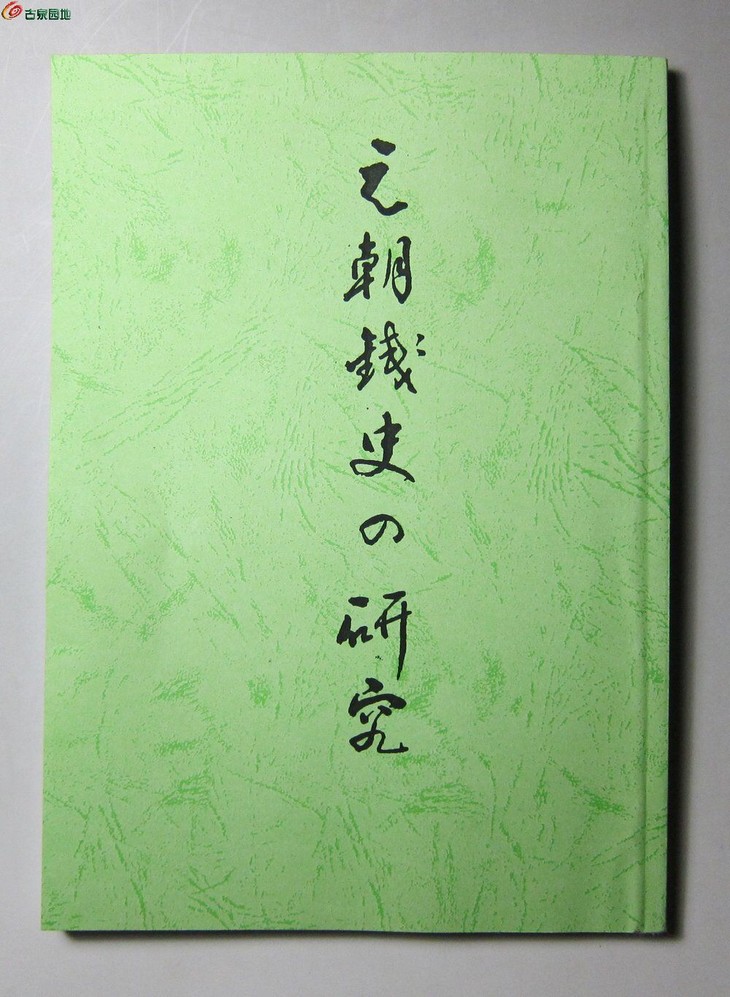 古泉园地
元朝錢史の研究